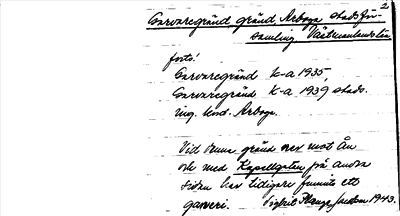 2
Garvaregränd gränd Arboga stadsför-
samling Västmanlands län
forts.
Garvaregränd K-a 1935,
Garvaregränd K-a 1939 stads.
ing. kont. Arboga.
Vid denna gränd ner mot Ån
och med Kapellgatan på andra
sidan har tidigare funnits ett
garveri. 1943.